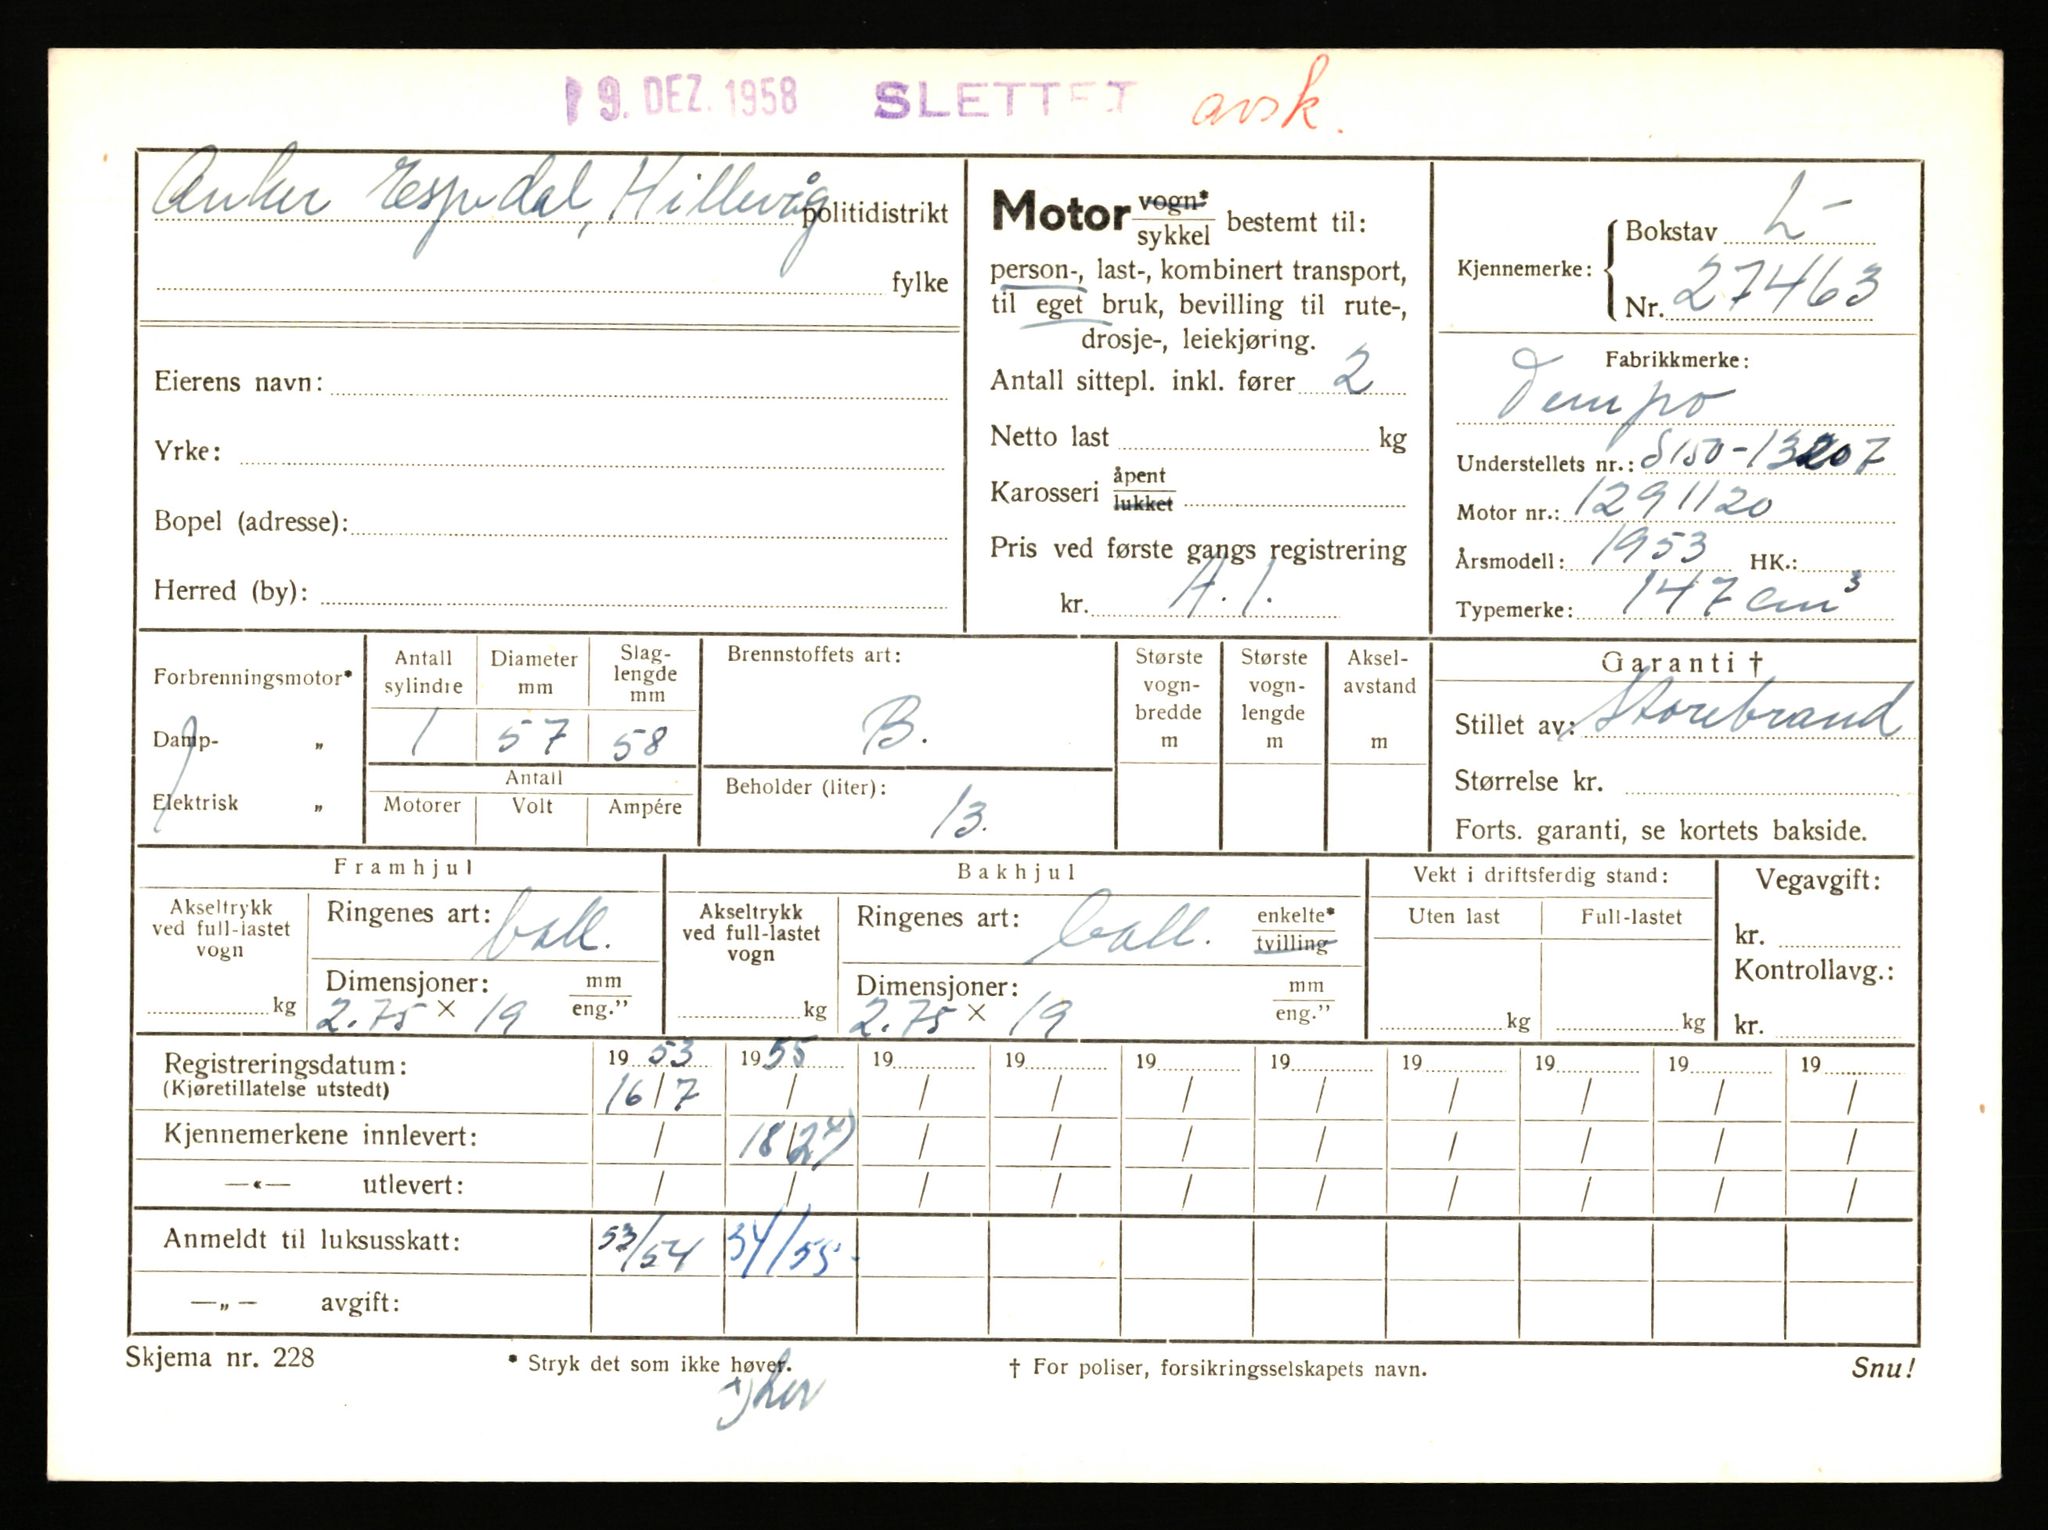 19. DEZ. 1958 SLETTET avsk.
Anker Espedal, Hillevåg politidistrikt
fylke
Eierens navn:
Yrke:
Bopel (adresse):
Herred (by):
Motor vogn* / sykkel bestemt til:
person-, last-, kombinert transport,
til eget bruk, bevilling til rute-,
drosje-, leiekjøring.
Antall sittepl. inkl. fører 2
Netto last kg
Karosseri åpent / lukket
Pris ved første gangs registrering
kr. A.1.
Kjennemerke: Bokstav L-
Nr. 27463
Fabrikkmerke:
Tempo
Understellets nr.: S150-13207
Motor nr.: 1291120
Årsmodell: 1953 HK.:
Typemerke: 147 cm³
Forbrenningsmotor*
Damp- „
Elektrisk „
Antall sylindre Diameter mm Slag-lengde mm
1 57 58
Antall
Motorer Volt Ampére
Brennstoffets art:
B.
Beholder (liter):
13.
Største vogn-bredde m
Største vogn-lengde m
Aksel-avstand m
Garanti †
Stillet av: Storebrand
Størrelse kr.
Forts. garanti, se kortets bakside.
Framhjul
Akseltrykk ved full-lastet vogn
kg
Ringenes art: ball.
Dimensjoner: mm / eng."
2.75 × 19
Bakhjul
Akseltrykk ved full-lastet vogn
kg
Ringenes art: ball. enkelte* / tvilling
Dimensjoner: mm / eng."
2.75 × 19
Vekt i driftsferdig stand:
Uten last Full-lastet
kg kg
Vegavgift:
kr.
Kontrollavg.:
kr.
Registreringsdatum: 19 53 19 55 19 19 19 19 19 19 19 19
(Kjøretillatelse utstedt) 16/7 / / / / / / / / /
Kjennemerkene innlevert: / 18/2 / / / / / / / /
—«— utlevert: / / / / / / / / / /
Anmeldt til luksusskatt: 53/54 54/55
—„— avgift:
Skjema nr. 228 * Stryk det som ikke høver. † For poliser, forsikringsselskapets navn. Snu!